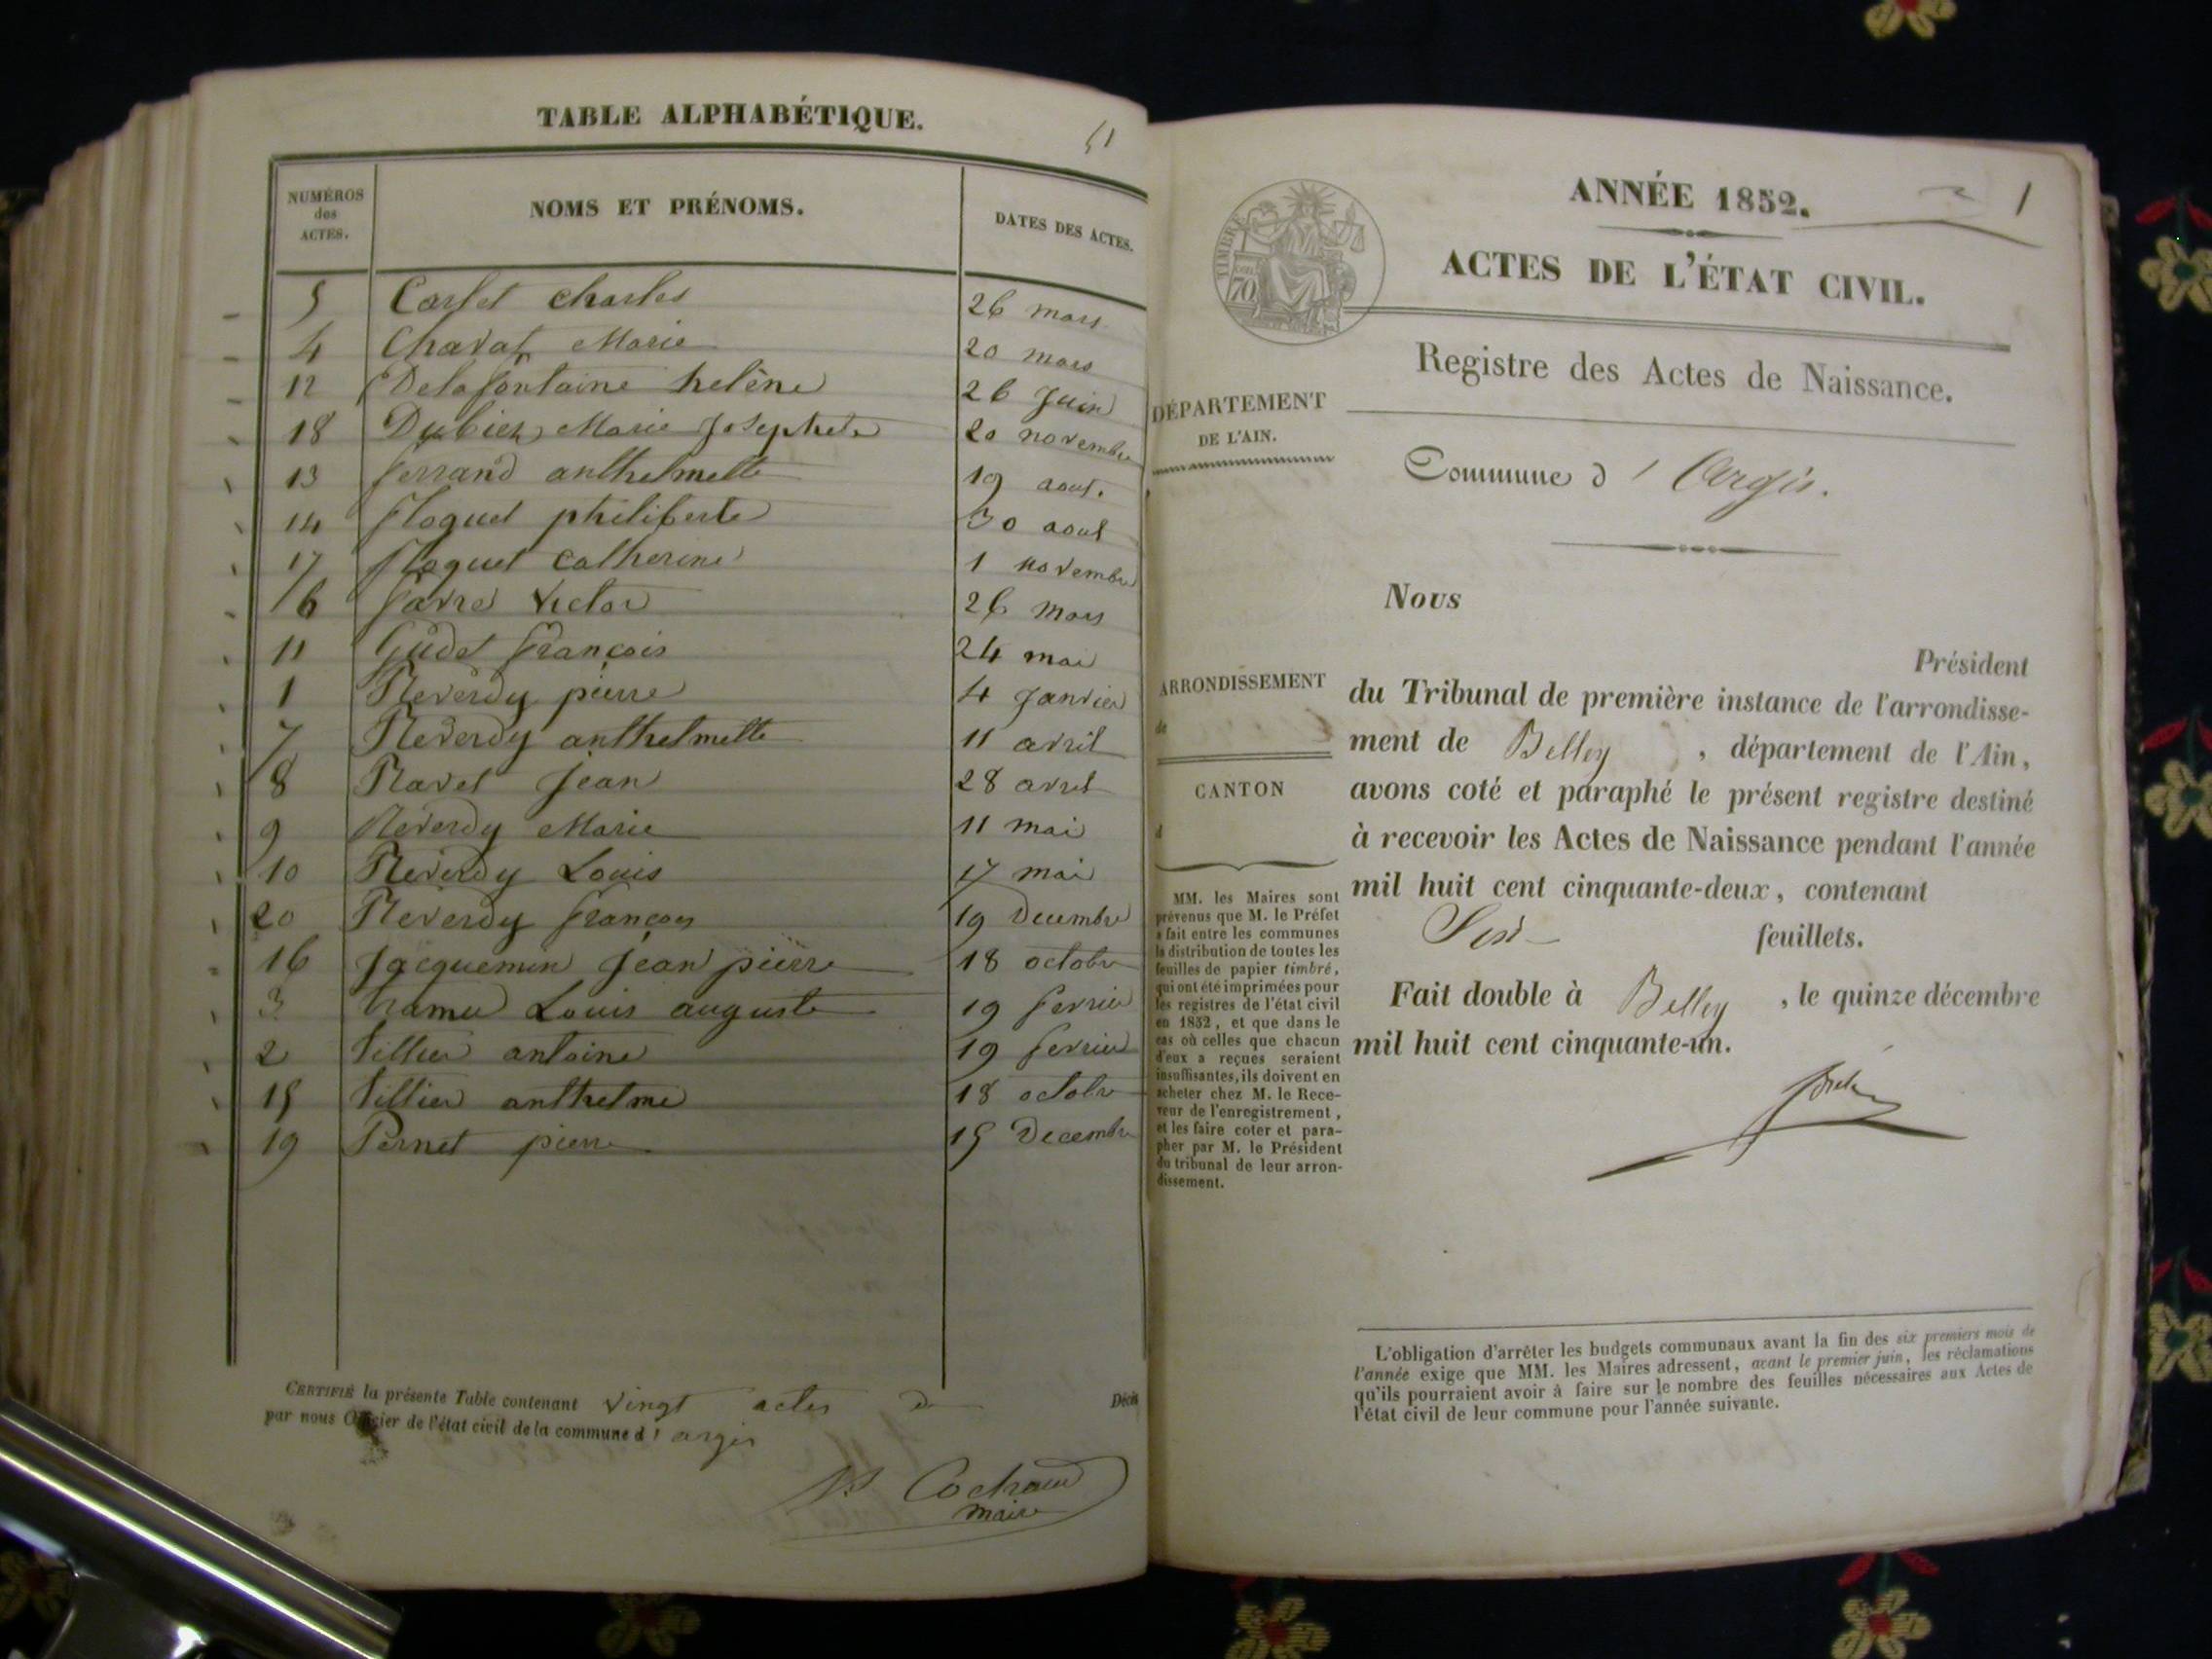 TABLE ALPHABÉTIQUE.
51
NUMÉROS
des
ACTES.
NOMS ET PRÉNOMS.
DATES DES ACTES.
5 Carlet charles 26 mars
4 Chavat Marie 20 mars
12 Delafontaine helène 26 Juin
18 Dubiez Marie Josephete 20 novembre
13 ferrand anthelmette 19 aout.
14 floquet philiberte 30 aout
17 floquet catherine 1 novembre
6 favre victor 26 mars
11 Gudet françois 24 mai
1 Reverdy pierre 4 Janvier
7 Reverdy anthelmette 11 avril
8 Ravet Jean 28 avril
9 Reverdy Marie 11 mai
10 Reverdy Louis 17 mai
20 Reverdy françois 19 Decembre
16 Jacquemin Jean pierre 18 octobre
3 tramu Louis auguste 19 fevrier
2 tillier antoine 19 fevrier
15 tillier anthelme 18 octobre
19 Pernet pierre 15 Decembre
CERTIFIÉ la présente Table contenant vingt actes d Décès
par nous Officier de l'état civil de la commune d'argis
Cochaud
maire
ANNÉE 1852.
1
TIMBRE
70
ACTES DE L'ÉTAT CIVIL.
Registre des Actes de Naissance.
DÉPARTEMENT
DE L'AIN.
Commune d'Argis.
Nous
Président
ARRONDISSEMENT
de
CANTON
d
du Tribunal de première instance de l'arrondisse-
ment de Belley, département de l'Ain,
avons coté et paraphé le présent registre destiné
à recevoir les Actes de Naissance pendant l'année
mil huit cent cinquante-deux, contenant
Six feuillets.
Fait double à Belley, le quinze décembre
mil huit cent cinquante-un.
MM. les Maires sont
prévenus que M. le Préfet
a fait entre les communes
la distribution de toutes les
feuilles de papier timbré,
qui ont été imprimées pour
les registres de l'état civil
en 1852, et que dans le
cas où celles que chacun
d'eux a reçues seraient
insuffisantes, ils doivent en
acheter chez M. le Rece-
veur de l'enregistrement,
et les faire coter et para-
pher par M. le Président
du tribunal de leur arron-
dissement.
L'obligation d'arrêter les budgets communaux avant la fin des six premiers mois de
l'année exige que MM. les Maires adressent, avant le premier juin, les réclamations
qu'ils pourraient avoir à faire sur le nombre des feuilles nécessaires aux Actes de
l'état civil de leur commune pour l'année suivante.